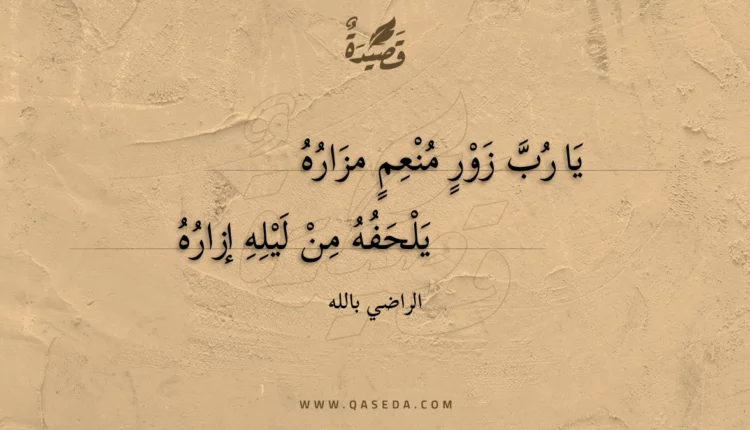 قَصِيْدَةٌ
يَا رُبَّ زَوْرٍ مُنْعِمٍ مزَارُهُ
يَلْحَفُهُ مِنْ لَيْلِهِ إزارُهُ
الراضي بالله
WWW.QASEDA.COM